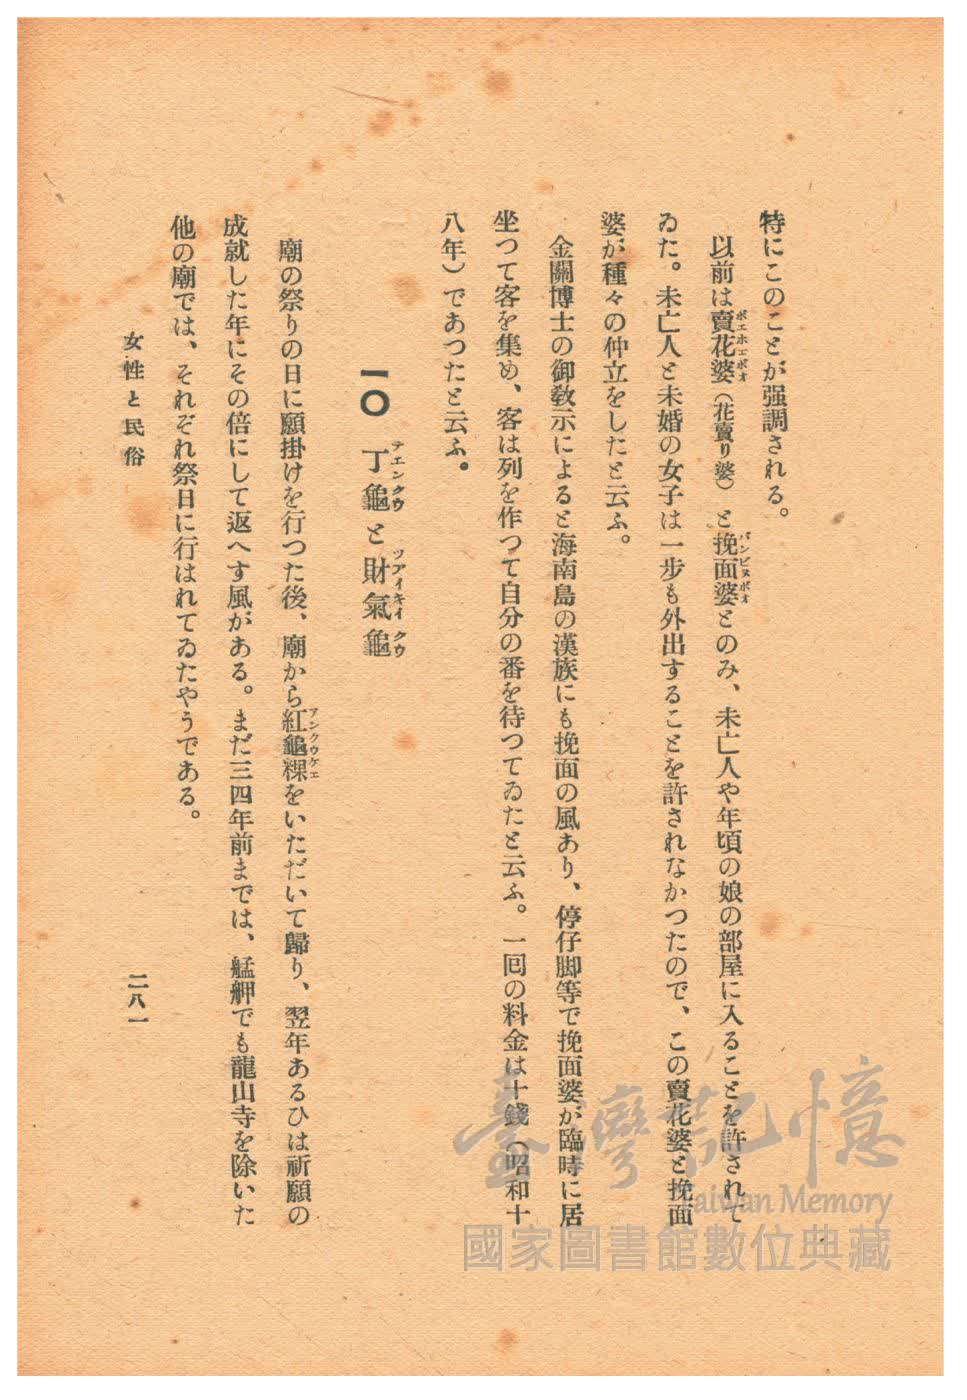 特にこのことが强調される。
以前は賣花婆（花賣り婆）と挽面婆とのみ、未亡人や年頃の娘の部屋に入ることを許されて
ゐた。未亡人と未婚の女子は一步も外出することを許されなかつたので、この賣花婆と挽面
婆が種々の仲立をしたと云ふ。
金關博士の御敎示によると海南島の漢族にも挽面の風あり、停仔脚等で挽面婆が臨時に居
坐つて客を集め、客は列を作つて自分の番を待つてゐたと云ふ。一回の料金は十錢（昭和十
八年）であつたと云ふ。
一〇 丁龜と財氣龜
テエンクウ ツアイキイクウ
廟の祭りの日に願掛けを行つた後、廟から紅龜粿をいただいて歸り、翌年あるひは祈願の
アンクウケエ
成就した年にその倍にして返へす風がある。まだ三四年前までは、艋舺でも龍山寺を除いた
他の廟では、それぞれ祭日に行はれてゐたやうである。
女性と民俗
二八一
臺灣記憶
Taiwan Memory
國家圖書館數位典藏